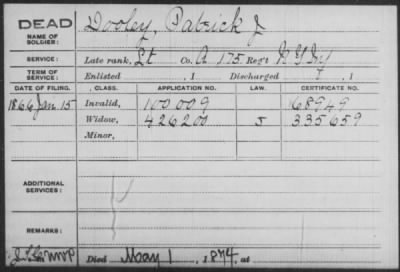 DEAD
NAME OF SOLDIER: Dooley, Patrick J
SERVICE: Late rank, Lt Co. A 175 Reg't N Y Inf
TERM OF SERVICE: Enlisted , 1 Discharged , 1
DATE OF FILING. CLASS. APPLICATION NO. LAW. CERTIFICATE NO.
1866 Jan. 15 Invalid, 100009 68949
Widow, 426200 J 335659
Minor,
ADDITIONAL SERVICES:
REMARKS:
Died May 1, 1874, at